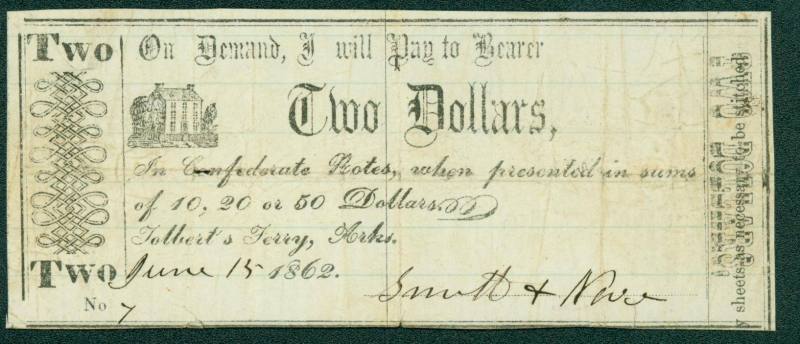 Two
On Demand, I will Pay to Bearer
Two Dollars,
In Confederate Notes, when presented in sums
of 10, 20 or 50 Dollars.
Tolbert's Ferry, Arks.
Two
June 15 1862.
No 7
Smith &
y sheets as necessary to be stitched